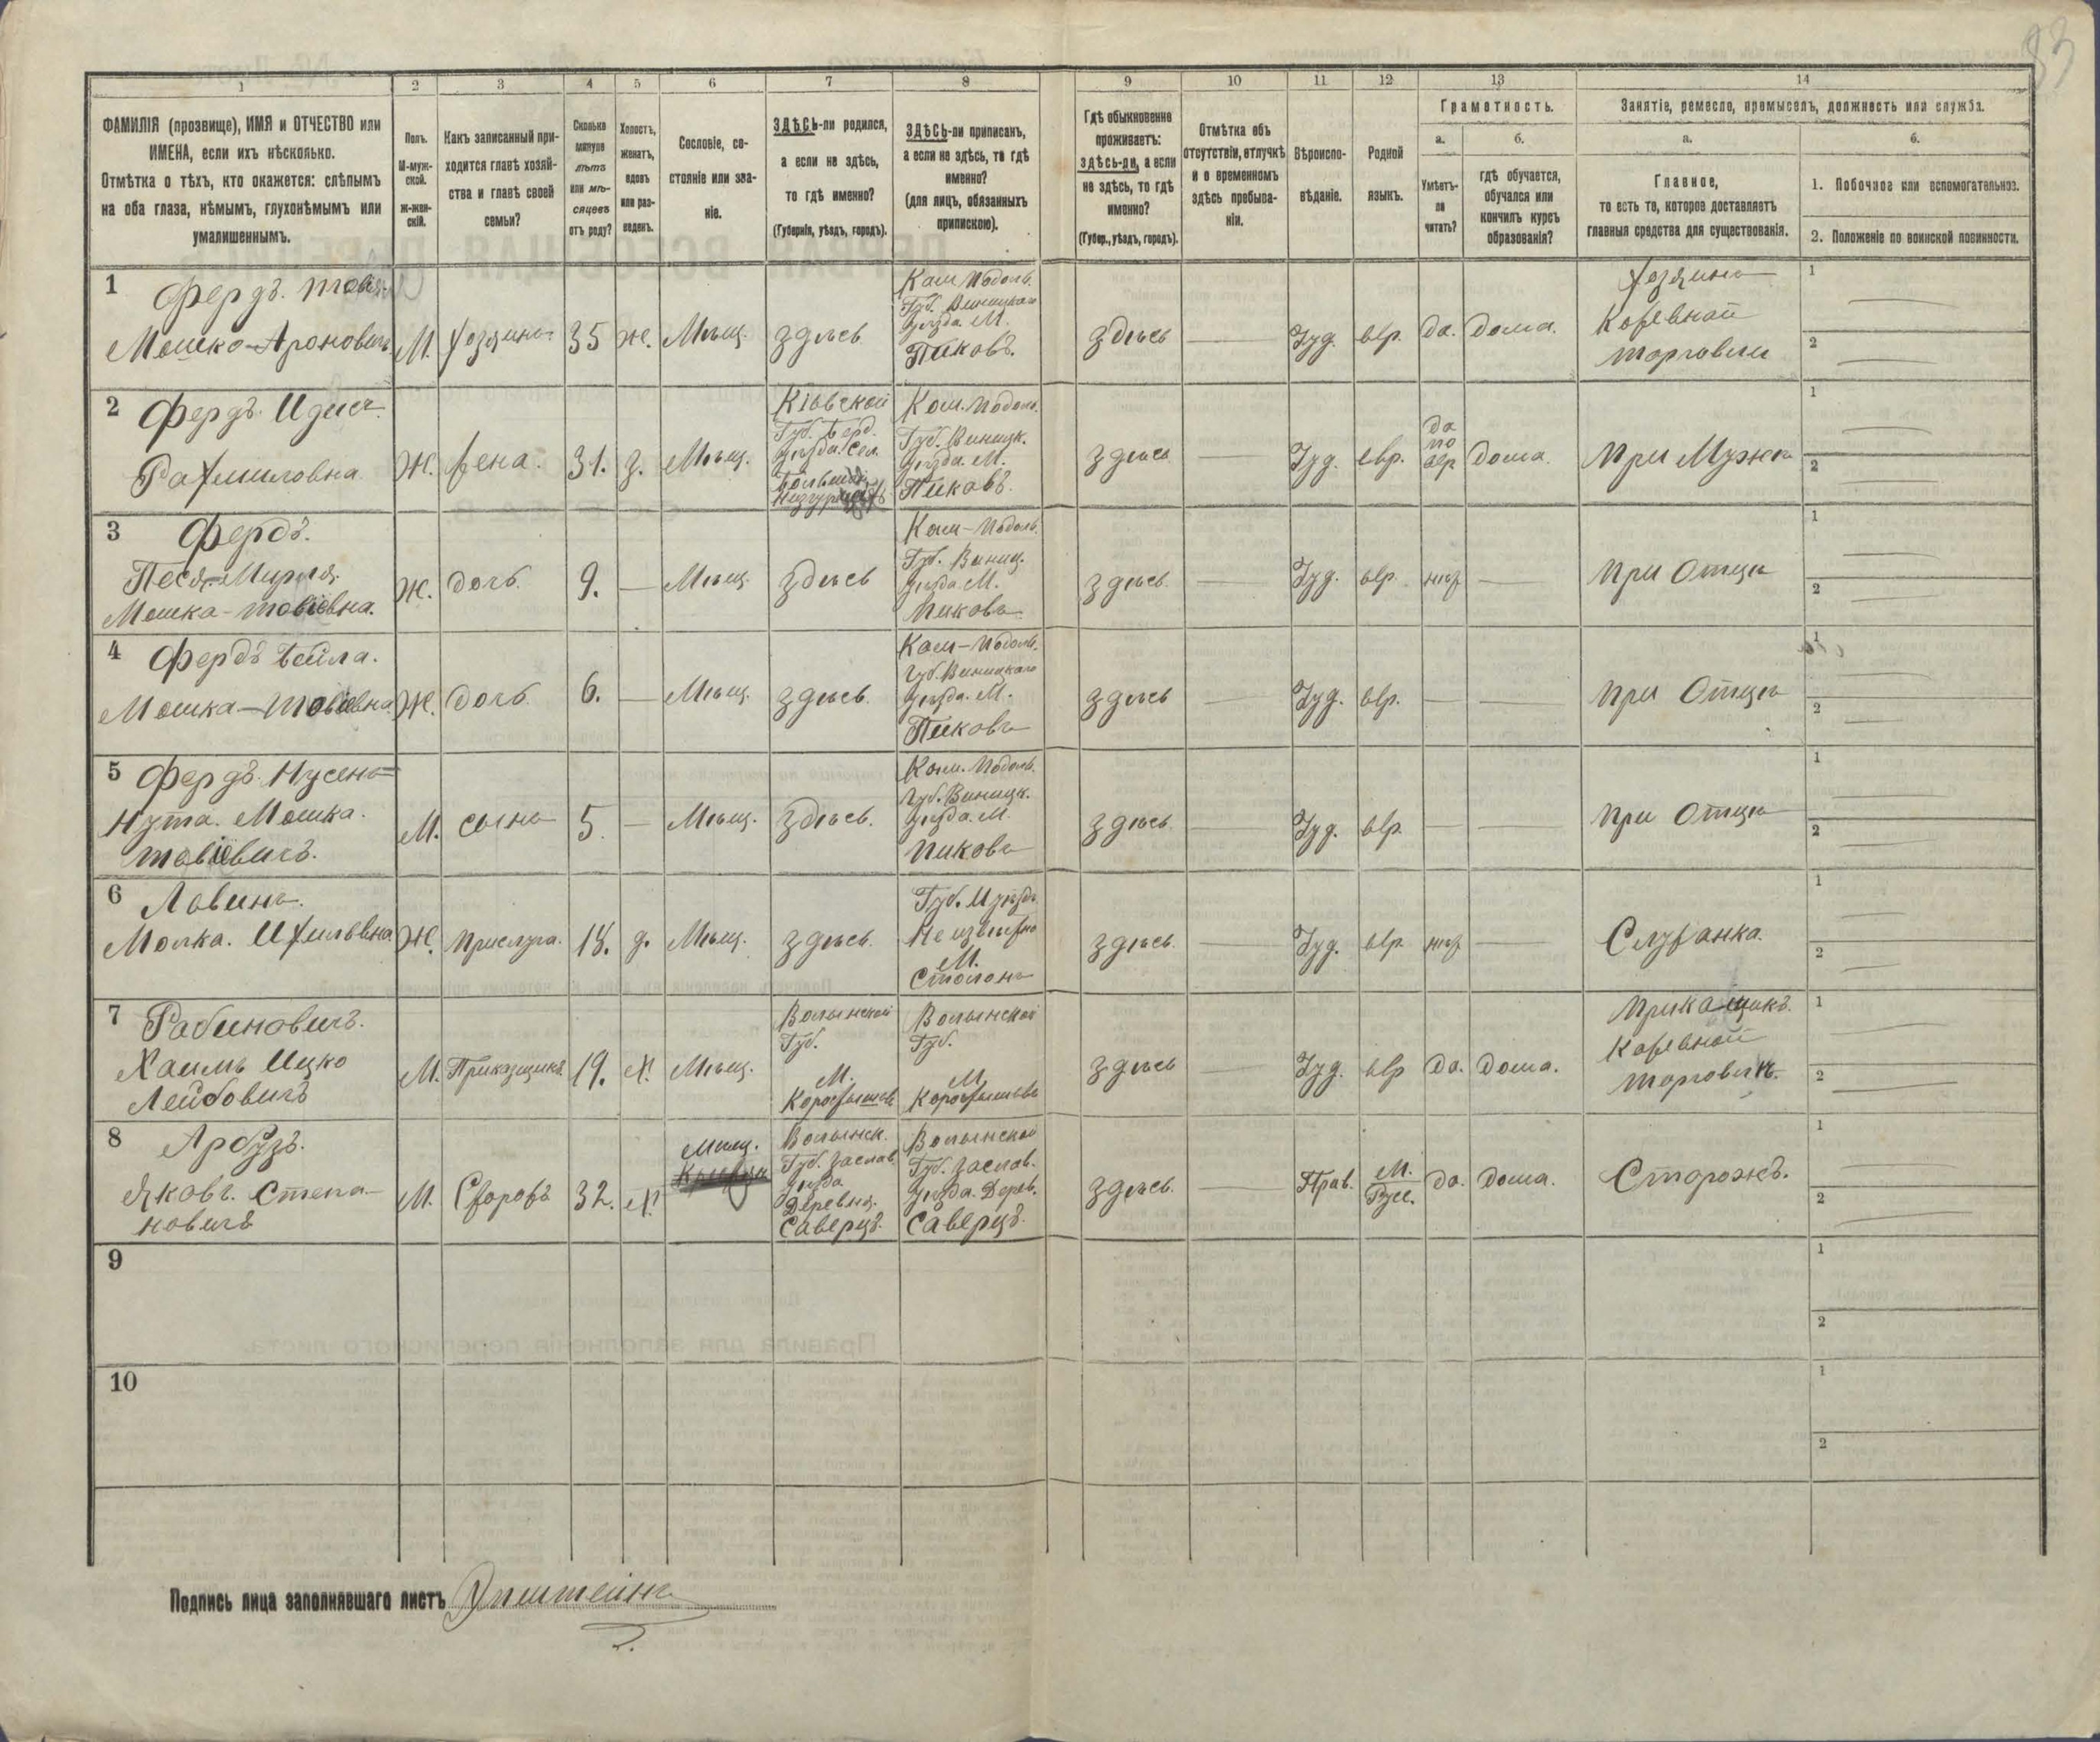 83
1
2
3
4
5
6
7
8
9
10
11
12
13
14
ФАМИЛІЯ (прозвище), ИМЯ и ОТЧЕСТВО или
ИМЕНА, если ихъ нѣсколько.
Отмѣтка о тѣхъ, кто окажется: слѣпымъ
на оба глаза, нѣмымъ, глухонѣмымъ или
умалишеннымъ.
Полъ.
М-муж-
ской.
ж-жен-
скій.
Какъ записанный при-
ходится главѣ хозяй-
ства и главѣ своей
семьи?
Сколько
минуло
лѣтъ
или мѣ-
сяцевъ
отъ роду?
Холостъ,
женатъ,
вдовъ
или раз-
веденъ.
Сословіе, со-
стояніе или зва-
ніе.
ЗДѢСЬ-ли родился,
а если не здѣсь,
то гдѣ именно?
(Губернія, уѣздъ, городъ).
ЗДѢСЬ-ли приписанъ,
а если не здѣсь, то гдѣ
именно?
(для лицъ, обязанныхъ
припискою).
Гдѣ обыкновенно
проживаетъ:
здѣсь-ли, а если
не здѣсь, то гдѣ
именно?
(Губер., уѣздъ, городъ).
Отмѣтка объ
отсутствіи, отлучкѣ
и о временномъ
здѣсь пребыва-
ніи.
Вѣроиспо-
вѣданіе.
Родной
языкъ.
Грамотность.
а.
Умѣетъ-
ли
читать?
б.
гдѣ обучается,
обучался или
кончилъ курсъ
образованія?
Занятіе, ремесло, промыселъ, должность или служба.
а.
Главное,
то есть то, которое доставляетъ
главныя средства для существованія.
б.
1. Побочное или вспомогательное.
2. Положеніе по воинской повинности.
1 Фердъ.
Мошко-Ароновичъ
М.
Хозяинъ
35
Ж.
Мѣщ.
Здѣсь
Кам Подоль.
Губ. Виницкаго
уѣзда. М.
Пиковъ.
Здѣсь
Іуд.
евр.
да.
дома.
Хозяинъ
Кожевной
торговли
1
2
2 Фердъ. Идись
Рахмиловна
Ж.
Жена.
31.
З.
Мѣщ.
Кіевской
Губ. Берд.
уѣзда. Сел.
Кам. Подоль.
Губ. Виницк.
уѣзда. М.
Пиковъ.
здѣсь
Іуд.
евр.
да
по
евр
дома.
При Мужѣ
1
2
3 Фердъ.
Песя-Мирля.
Мошка-Товіевна.
Ж.
дочь.
9.
Мѣщ.
Здѣсь
Кам-Подоль.
Губ. Виниц.
уѣзда М.
Пиковъ
здѣсь.
Іуд.
евр.
нѣт
при Отцѣ
1
2
4 Фердъ Бейла.
Мошка-Товіевна
Ж.
дочь
6.
Мѣщ.
здѣсь.
Кам-Подоль.
Губ. Виницкаго
уѣзда. М.
Пиковъ
здѣсь
Іуд.
евр.
при Отцѣ
1
2
5 Фердъ. Нусенъ
Нута. Мошка.
Товіевичъ.
М.
сынъ
5.
Мѣщ.
Здѣсь.
Кам. Подоль.
Губ. Виницк.
уѣзда. М.
Пиковъ
здѣсь
Іуд.
евр.
при Отцѣ
1
2
6 Левинъ.
Малка. Ихильевна
Ж.
прислуга.
18.
д.
Мѣщ.
здѣсь.
Губ. И уѣздъ
Неизвѣстно
М.
Столонъ
здѣсь.
Іуд.
евр.
нѣт
Служанка.
1
2
7 Рабиновичъ.
Хаимъ Ицко
Лейбовичъ
М.
Приказщикъ
19.
Х.
Мѣщ.
Волынской
Губ.
М.
Коростышевъ
Волынской
Губ.
М.
Коростышевъ
здѣсь
Іуд.
евр
да.
дома.
Приказщикъ.
Кожевной
торговли.
1
2
8 Арбузъ.
Яковъ. Степа-
новичъ
М.
Сторожъ
32.
Х.
Мѣщ.
Волынск.
Губ. Заслав.
уѣзда
Деревня.
Саверцъ.
Волынской
Губ. Заслав.
уѣзда. Дерев.
Саверцъ.
здѣсь.
Прав.
М.
Рус.
да.
дома.
Сторожъ.
1
2
9
1
2
10
1
2
Подпись лица заполнявшаго листъ Эпштейнъ